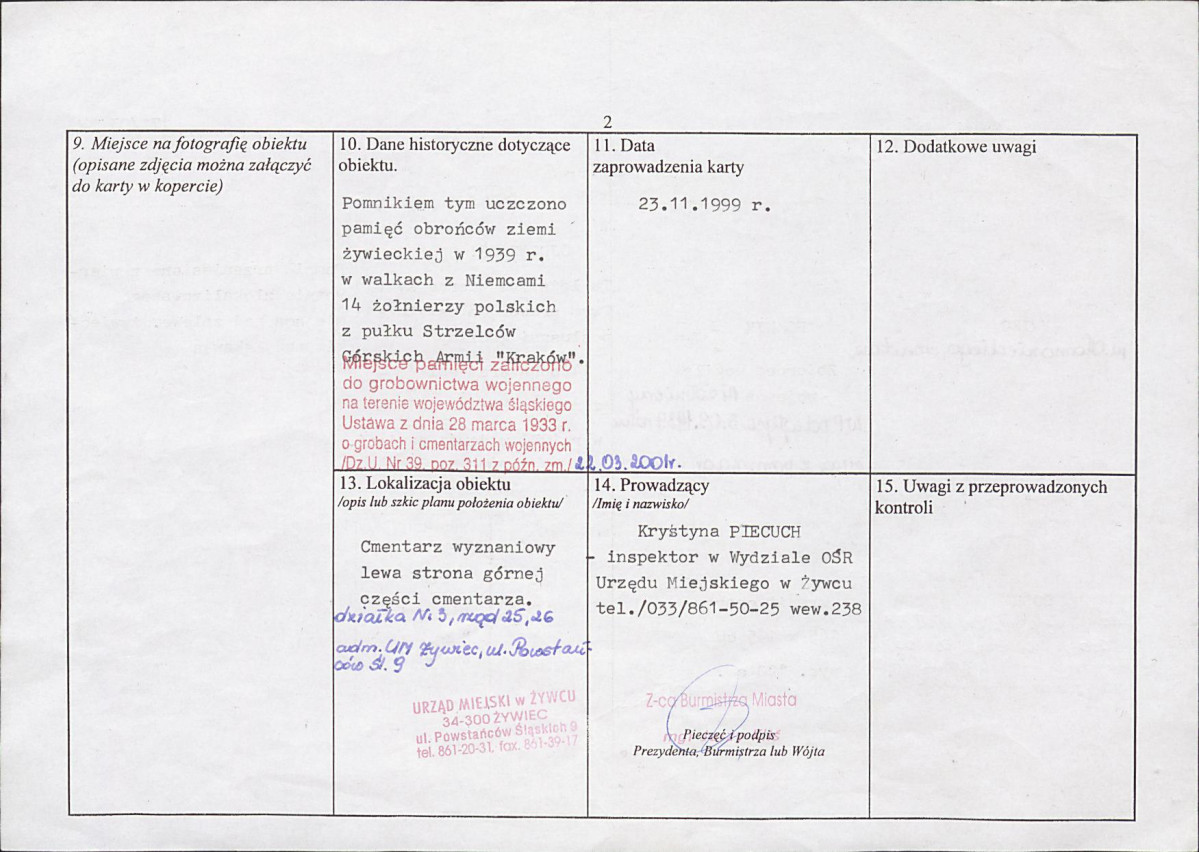 2
9. Miejsce na fotografię obiektu
(opisane zdjęcia można załączyć
do karty w kopercie)
10. Dane historyczne dotyczące
obiektu.
Pomnikiem tym uczczono
pamięć obrońców ziemi
żywieckiej w 1939 r.
w walkach z Niemcami
14 żołnierzy polskich
z pułku Strzelców
Górskich Armii "Kraków".
Miejsce pamięci zaliczono
do grobownictwa wojennego
na terenie województwa śląskiego
Ustawa z dnia 28 marca 1933 r.
o grobach i cmentarzach wojennych
/Dz.U. Nr 39, poz. 311 z późn. zm./ 22.03.2001r.
11. Data
zaprowadzenia karty
23.11.1999 r.
12. Dodatkowe uwagi
13. Lokalizacja obiektu
/opis lub szkic planu położenia obiektu/
Cmentarz wyznaniowy
lewa strona górnej
części cmentarza.
działka Nr 3, rząd 25, 26
adm. UM Żywiec, ul. Powstań-
ców Śl. 9
URZĄD MIEJSKI w ŻYWCU
34-300 ŻYWIEC
ul. Powstańców Śląskich 9
tel. 861-20-31, fax. 861-39-17
14. Prowadzący
/Imię i nazwisko/
Krystyna PIECUCH
- inspektor w Wydziale OŚR
Urzędu Miejskiego w Żywcu
tel./033/861-50-25 wew.238
Z-ca Burmistrza Miasta
Pieczęć i podpis
Prezydenta, Burmistrza lub Wójta
15. Uwagi z przeprowadzonych
kontroli